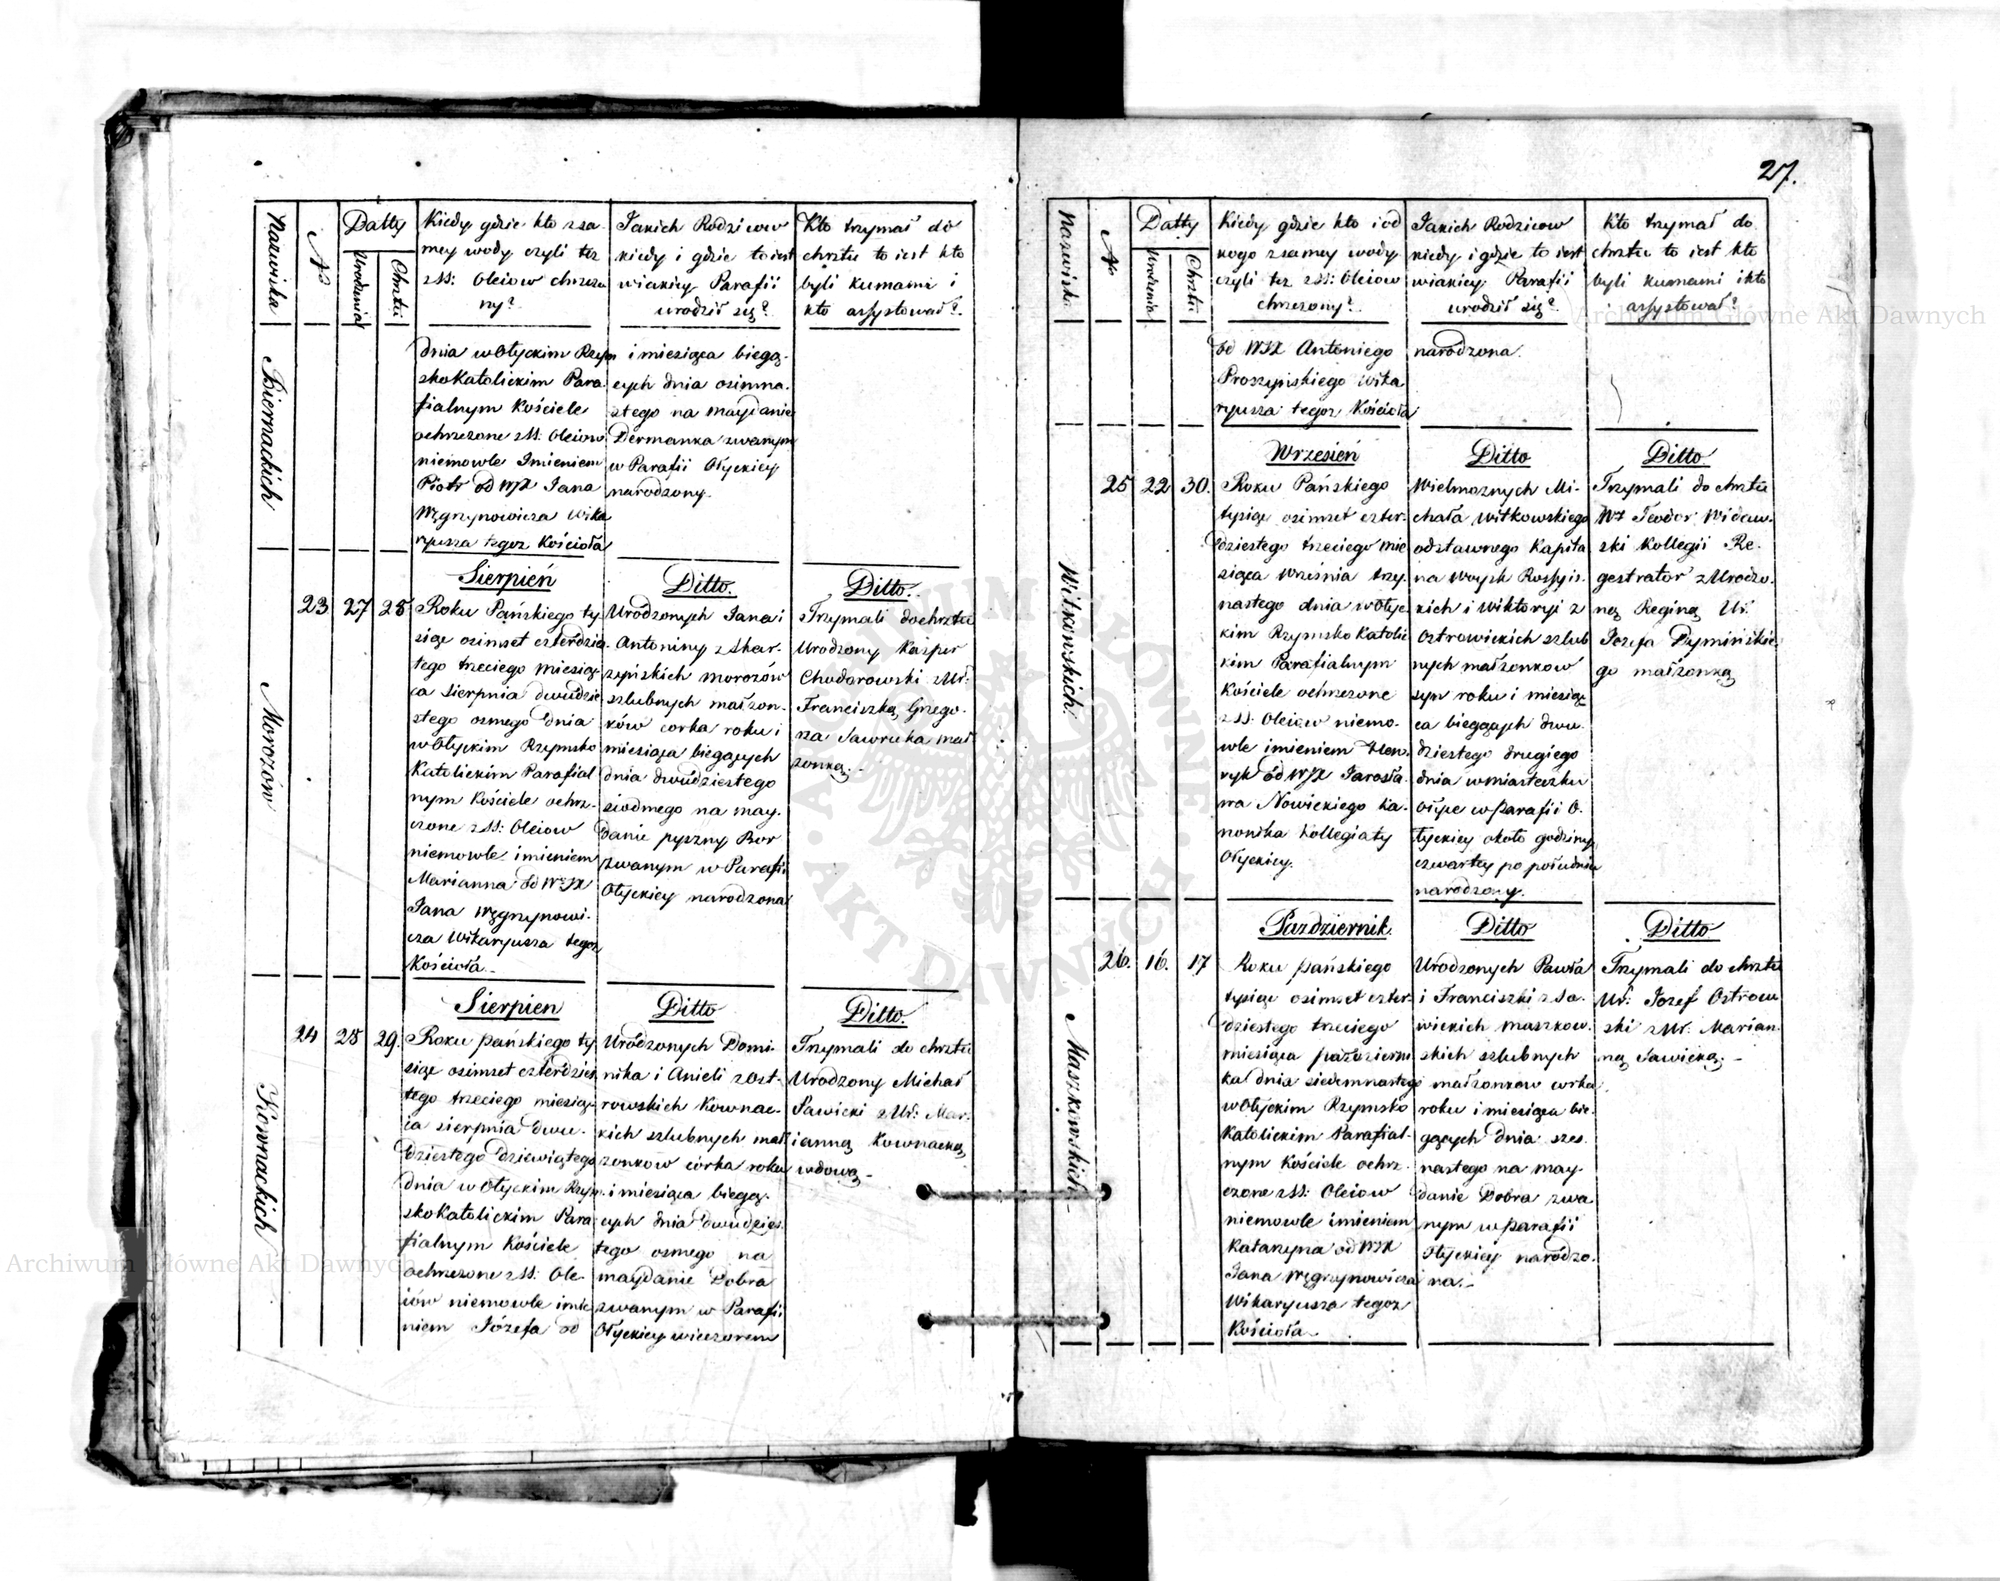 Nazwiska
N
Datty
Urodzenia
Chrztu
Kiedy gdzie kto z sa-
mey wody czyli tez
z SS: Oleiow chrzczo
ny?
Jakich Rodzicow
kiedy i gdzie to iest
w iakiey Parafii
urodził się?
Kto trzymał do
chrztu to iest kto
byli kumami i
kto assystował?
Biernackich
dnia w Ołyckim Rzym
sko Katolickim Para
fialnym Kościele
ochrzczone z SS: Oleiow
niemowle Imieniem
Piotr od WJX Jana
Węgrzynowicza Wika
ryusza tegoz Kościoła
i miesiąca biegą-
cych dnia osimna-
stego na maydanie
Dermanka zwanym
w Parafii Ołyckiey
narodzony.
Morozów
23
27
28
Sierpień
Roku Pańskiego ty
siąc osimset czterdzies
tego trzeciego miesią
ca Sierpnia dwudzie
stego osmego dnia
w Ołyckim Rzymsko
Katolickim Parafial
nym Kościele ochrz-
czone z SS: Oleiow
niemowle imieniem
Marianna od WJX
Jana Węgrzynowi-
cza Wikaryusza tegoz
Kościoła.
Ditto.
Urodzonych Jana i
Antoniny z Skar-
zyńskich Morozów
szlubnych małzon-
ków corka roku i
miesiąca biegących
dnia dwudziestego
siodmego na may-
danie pyszny Bor
zwanym w Parafii
Ołyckiey narodzona
Ditto.
Trzymali do chrztu
Urodzony Kasper
Chodorowski z Ur:
Franciszką Grzego-
rza Sawruka mał
zonką.-
Kownackich
24
28
29.
Sierpien
Roku pańskiego ty
siąc osimset czterdzies
tego trzeciego miesią
ca sierpnia dwu-
dziestego dziewiątego
dnia w Ołyckim Rzym-
sko Katolickim Para
fialnym Kościele
ochrzczone z SS: Ole-
iów niemowle imie
niem Józefa od
Ditto
Uródzonych Domi-
nika i Anieli z Ost-
rowskich Kownac-
kich szlubnych mał
zonkow córka roku
i miesiąca biegą-
cych dnia dwudzies
tego osmego na
maydanie Dobra
zwanym w Parafii
Ołyckiey wieczorem
Ditto.
Trzymali do chrztu
Urodzony Michał
Sawicki z Ur: Mar-
ianną Kownacką
wdową.-
27.
Nazwiska
N
Datty
Urodzenia
Chrztu
Kiedy gdzie kto i od
kogo z samey wody
czyli tez z SS: Oleiow
chrzczony?
Jakich Rodzicow
kiedy i gdzie to iest
w iakiey Parafii
urodził się?
Kto trzymał do
chrztu to iest kto
byli kumami i kto
assystował?
od WJX Antoniego
Proszyńskiego Wika
ryusza tegoz Kościoła
narodzona.
Witkowskich.
25
22
30.
Wrzesień
Roku Pańskiego
tysiąc osimset czter-
dziestego trzeciego mie
siąca Września trzy-
nastego dnia w Ołyc-
kim Rzymsko Katolic
kim Parafialnym
Kościele ochrzczone
z SS: Oleiow niemo-
wle imieniem Hen-
ryk od WJX Jarosła-
wa Nowickiego Ka-
nonika Kollegiaty
Ołyckiey.
Ditto
Wielmoznych Mi-
chała Witkowskiego
odstawnego Kapita
na Woysk Rossyis-
kich i Wiktoryi z
Ostrowickich szlub
nych małzonkow
syn roku i miesią
ca biegących dwu-
dziestego drugiego
dnia w miasteczku
Ołyce w parafii O-
łyckiey około godziny
czwartey po południu
narodzony.
Ditto
Trzymali do chrztu
Teodor Widaw-
ski Kollegii Re-
gestrator z Urodzo-
ną Reginą Ur:
Jozefa Dyminskie
go małzonką
Maszkowskich
26.
16.
17
Pazdziernik
Roku pańskiego
tysiąc osimset czter-
dziestego trzeciego
miesiąca pazdzierni
ka dnia siedemnastego
w Ołyckim Rzymsko
Katolickim Parafial-
nym Kościele ochrz-
czone z SS: Oleiow
niemowle imieniem
Katarzyna od WJX
Jana Węgrzynowicza
Wikaryusza tegoz
Kościoła.
Ditto
Urodzonych Pawła
i Franciszki z Sa-
wickich Maszkow-
skich szlubnych
małzonkow corka
roku i miesiąca bie-
gących dnia szes-
nastego na may-
danie Dobra zwa-
nym w parafii
Ołyckiey narodzo-
na.-
Ditto
Trzymali do chrztu
Ur: Jozef Ostrow
ski z Ur: Marian-
ną Sawicką.-
Archiwum Główne Akt Dawnych
Archiwum Główne Akt Dawnych
ARCHIWUM GŁÓWNE AKT DAWNYCH